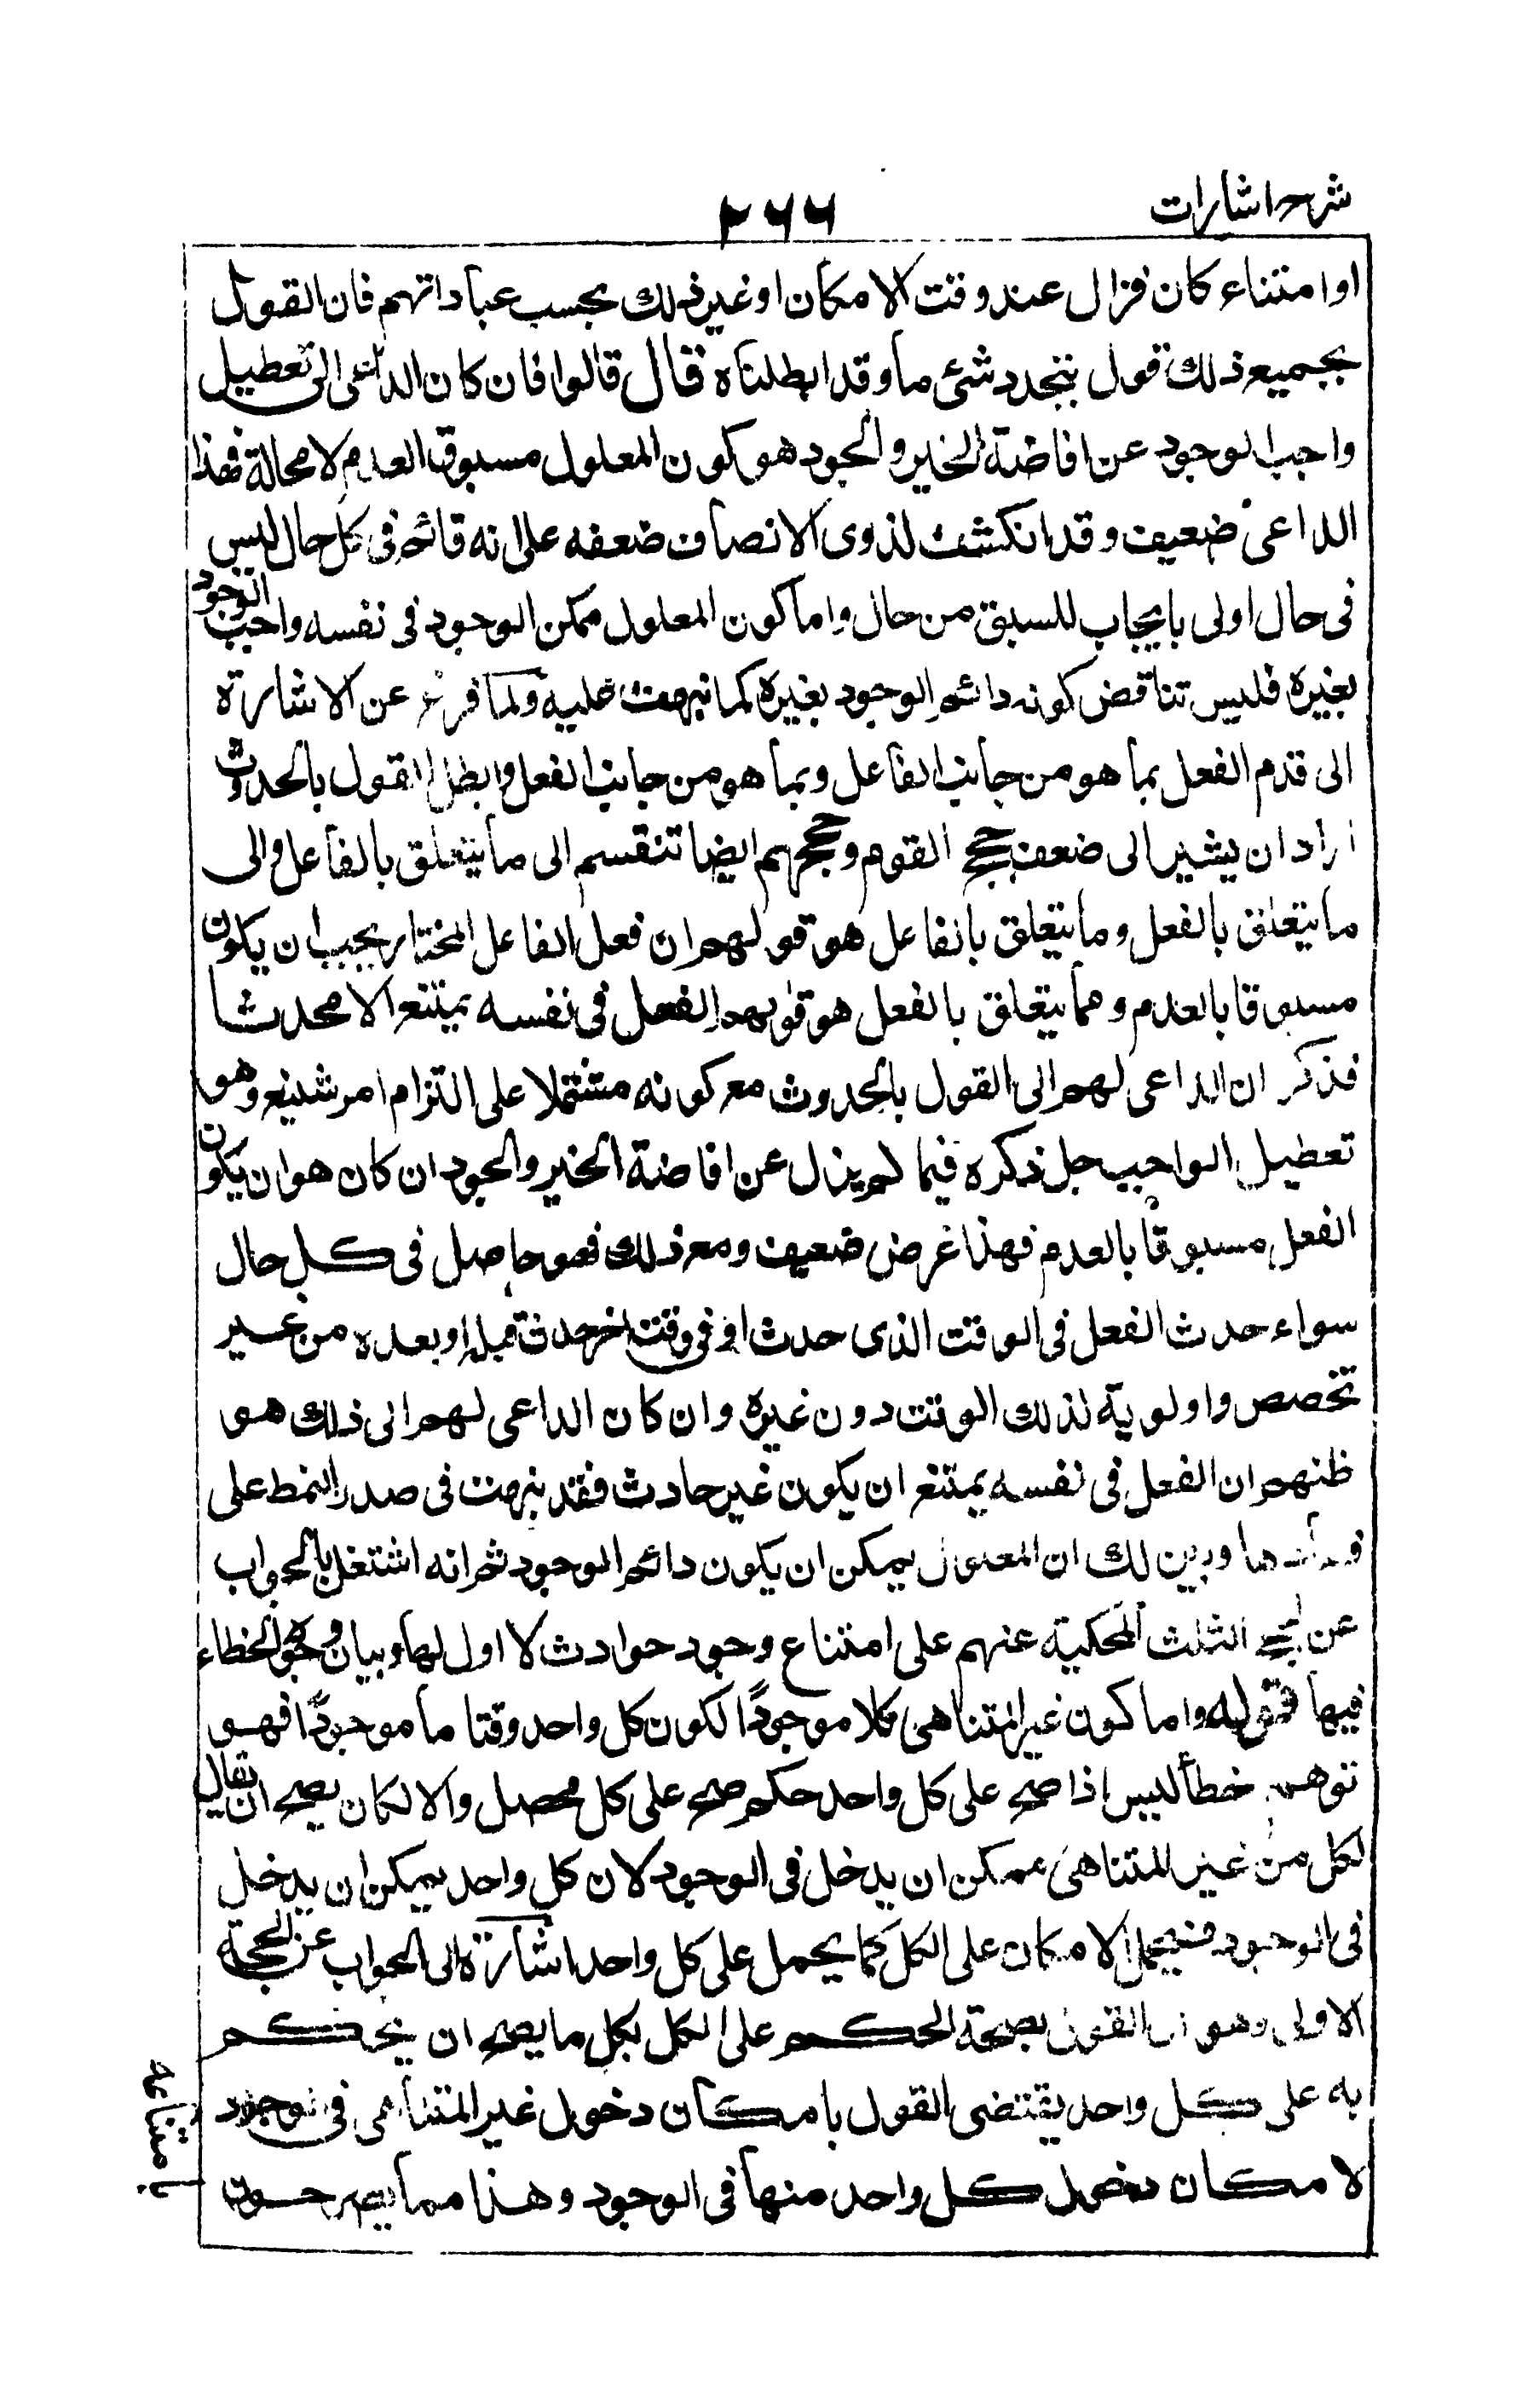 شرح اشارات
٢٦٦
او امتناع كان فزال عند وقت الامكان او غير ذلك بحسب عباداتهم فان القول
بجميع ذلك قول بتجدد شئ ما وقد ابطلناه فقال قالوا فان كان الداعى الى تعطيل
واجب الوجود عن افاضة الخير والجود هو كون المعلول مسبوق العدم لا محالة فهذا
الداعى ضعيف وقد انكشف لذوى الانصاف ضعفه على انه قائم فى كل حال ليس
فى حال اولى بايجاب للسبق من حال واما كون المعلول ممكن الوجود فى نفسه واجب الوجود
بغيره فليس تناقض كونه دائم الوجود بغيره كما نبهت عليه ولما فرغ عن الاشارة
الى قدم الفعل بما هو من جانب الفاعل وبما هو من جانب الفعل وابطل القول بالحدوث
اراد ان يشير الى ضعف حجج القوم وحججهم ايضا تنقسم الى ما يتعلق بالفاعل والى
ما يتعلق بالفعل وما يتعلق بالفاعل هو قولهم ان فعل الفاعل المختار يجب ان يكون
مسبوقا بالعدم ومما يتعلق بالفعل هو قولهم الفعل فى نفسه يمتنع الا محدثا
فذكر ان الداعى لهم الى القول بالحدوث مع كونه مشتملا على التزام امر شنيع وهو
تعطيل الواجب جل ذكره فيما لم يزل عن افاضة الخير والجود ان كان هو ان يكون
الفعل مسبوقا بالعدم فهذا غرض ضعيف ومع ذلك فهو حاصل فى كل حال
سواء حدث الفعل فى الوقت الذى حدث او فى وقت اخر حدث قبله او بعده من غير
تخصص واولوية لذلك الوقت دون غيره وان كان الداعى لهم الى ذلك هو
ظنهم ان الفعل فى نفسه يمتنع ان يكون غير حادث فقد نبهت فى صدر النمط على
وبين لك ان المعلول يمكن ان يكون دائم الوجود ثم انه اشتغل بالجواب
عن الحجج الثلث المحكية عنهم على امتناع وجود حوادث لا اول لها وبيان وجوه الخطاء
فيها فقوله واما كون غير المتناهى كلا موجودًا لكون كل واحد وقتا ما موجودًا فهو
توهم خطأ ليس اذا صح على كل واحد حكم صح على كل محصل والا لكان يصح ان يقال
لكل من غير المتناهى ممكن ان يدخل فى الوجود لان كل واحد يمكن ان يدخل
فى الوجود فيحمل الامكان على الكل كما يحمل على كل واحد اشارة الى الجواب عن الحجة
الاولى وهو ان القول بصحة الحكم على الكل بكل ما يصح ان يحكم
به على كل واحد يقتضى القول بامكان دخول غير المتناهى فى الوجود
لامكان دخول كل واحد منها فى الوجود وهذا مما يصرحون
بامتناعه